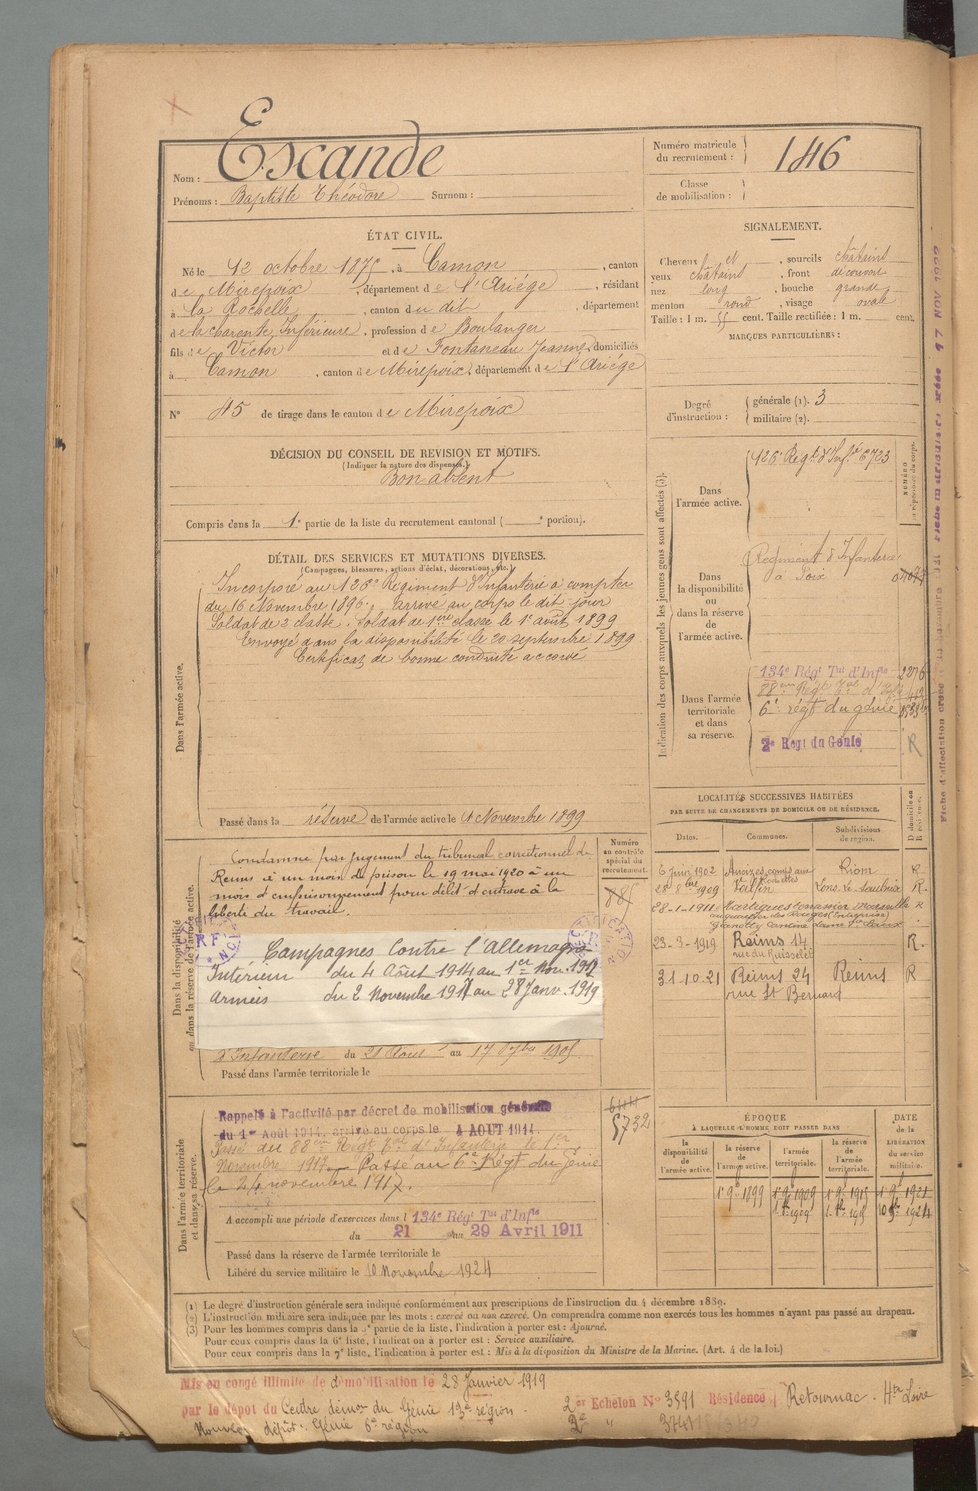 Nom : Escande
Prénoms : Baptiste Théodore Surnom :
Numéro matricule
du recrutement : 146
Classe
de mobilisation :
ÉTAT CIVIL.
Né le 12 octobre 1875, à Camon, canton
de Mirepoix, département de l'Ariége, résidant
à La Rochelle, canton du dit, département
de la Charente Inférieure, profession de Boulanger
fils de Victor et de Fontaneau Jeanne, domiciliés
à Camon, canton de Mirepoix, département de l'Ariége
N° 45 de tirage dans le canton de Mirepoix
SIGNALEMENT.
Cheveux et, sourcils châtains
yeux châtains, front découvert
nez long, bouche grande
menton rond, visage ovale
Taille : 1 m. 55 cent. Taille rectifiée : 1 m. cent.
MARQUES PARTICULIÈRES :
Degré
d'instruction :
générale (1). 3
militaire (2).
DÉCISION DU CONSEIL DE REVISION ET MOTIFS.
(Indiquer la nature des dispenses.)
Bon absent
Compris dans la 1e partie de la liste du recrutement cantonal ( e portion).
DÉTAIL DES SERVICES ET MUTATIONS DIVERSES.
(Campagnes, blessures, actions d'éclat, décorations, etc.)
Dans l'armée active.
Incorporé au 126e Régiment d'Infanterie à compter
du 16 Novembre 1896, arrivé au corps le dit jour
Soldat de 2e classe. Soldat de 1ère classe le 1er août 1899
Envoyé dans la disponibilité le 20 septembre 1899
Certificat de bonne conduite accordé
Passé dans la réserve de l'armée active le 1 Novembre 1899
Dans la disponibilité
ou dans la réserve de l'armée active.
Condamné par jugement du tribunal correctionnel de
Reims à un mois de prison le 19 mai 1920 à un
mois d'emprisonnement pour délit d'entrave à la
liberté du travail.
Numéro
au contrôle
spécial du
recrutement.
885
RF
Campagnes Contre l'Allemagne
Intérieur du 4 Août 1914 au 1er Nov. 1917
Armées du 2 Novembre 1917 au 28 Janv. 1919
d'Infanterie du 21 Août au 17 7bre 1905
Passé dans l'armée territoriale le
Dans l'armée territoriale
et dans sa réserve.
Rappelé à l'activité par décret de mobilisation générale
du 1er Août 1914, arrivé au corps le 4 AOUT 1914.
Passé au 88ème Régt Tal d'Infanterie le 1er
Novembre 1917. Passé au 6e Régt du Génie
le 24 novembre 1917.
5732
A accompli une période d'exercices dans l 134e Régt Tal d'Infie
du 21 au 29 Avril 1911
Passé dans la réserve de l'armée territoriale le
Libéré du service militaire le 10 Novembre 1924
Indication des corps auxquels les jeunes gens sont affectés (3).
NUMÉRO
Dans
l'armée active.
126e Régt d'Infie 6723
Dans
la disponibilité
ou
dans la réserve
de
l'armée active.
Régiment d'Infanterie
à Foix
Dans l'armée
territoriale
et dans
sa réserve.
134e Régt Tal d'Infie
6e régt du génie
2e Régt du Génie R
LOCALITÉS SUCCESSIVES HABITÉES
PAR SUITE DE CHANGEMENTS DE DOMICILE OU DE RÉSIDENCE.
D domicile ou
R résidence.
Dates. Communes. Subdivisions
de région.
6 Juin 1902 Riom R
28 8bre 1909 Lons-le-Saulnier R.
28-1-1911 Martigues Marseille R
23-3-1919 Reims 14 R.
rue du Ruisselet
31.10.21 Reims 24 Reims R
rue St Bernard
ÉPOQUE
À LAQUELLE L'HOMME DOIT PASSER DANS
DATE
de la
LIBÉRATION
du service
militaire.
la
disponibilité
de
l'armée active.
la réserve
de
l'armée active.
l'armée
territoriale.
la réserve
de
l'armée
territoriale.
1er 9bre 1899 1er 9bre 1909 1er 9bre 1915 1er 9bre 1921
10 9bre 1924
(1) Le degré d'instruction générale sera indiqué conformément aux prescriptions de l'instruction du 4 décembre 1889.
(2) L'instruction militaire sera indiquée par les mots : exercé ou non exercé. On comprendra comme non exercés tous les hommes n'ayant pas passé au drapeau.
(3) Pour les hommes compris dans la 5e partie de la liste, l'indication à porter est : Ajourné.
Pour ceux compris dans la 6e liste, l'indication à porter est : Service auxiliaire.
Pour ceux compris dans la 7e liste, l'indication à porter est : Mis à la disposition du Ministre de la Marine. (Art. 4 de la loi.)
Mis en congé illimité de démobilisation le 28 Janvier 1919
par le dépôt du Centre démob du Génie 13e région. 2er Echelon No 3591 Résidence Retournac. Hte Loire
Nouveau dépôt : Génie 6e région